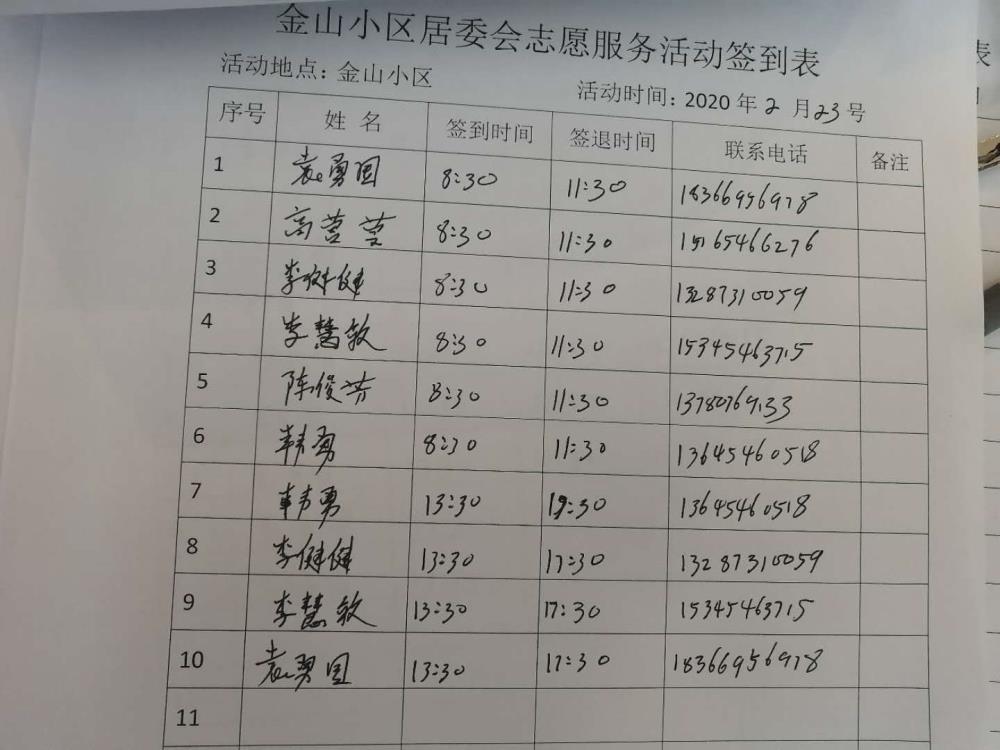 金山小区居委会志愿服务活动签到表
活动地点：金山小区 活动时间：2020 年 2 月 23 号
序号 姓 名 签到时间 签退时间 联系电话 备注
1 袁勇国 8:30 11:30 18366956978
2 高营营 8:30 11:30 15165466276
3 李健健 8:30 11:30 13287310059
4 李慧敏 8:30 11:30 15345463715
5 陈俊芳 8:30 11:30 13780769133
6 韩勇 8:30 11:30 13645460518
7 韩勇 13:30 17:30 13645460518
8 李健健 13:30 17:30 13287310059
9 李慧敏 13:30 17:30 15345463715
10 袁勇国 13:30 17:30 18366956978
11
表